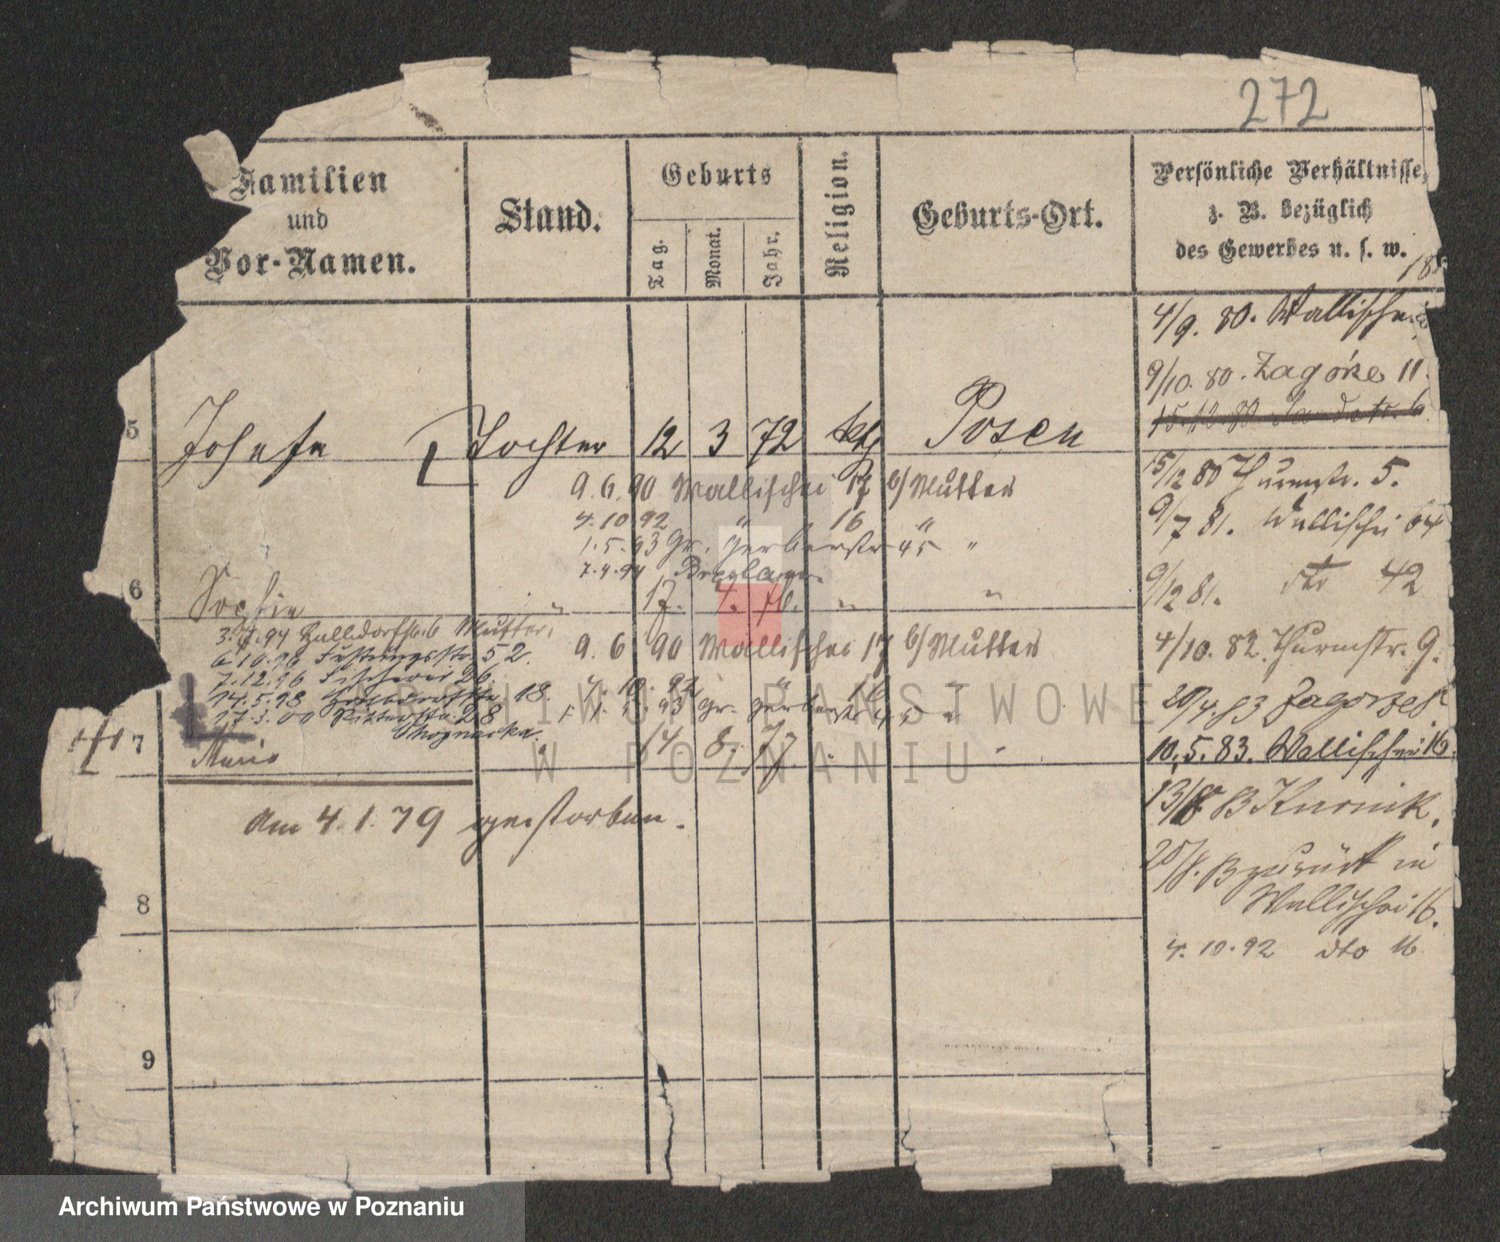 272
Familien
und
Vor-Namen.
Stand.
Geburts
Tag.
Monat.
Jahr.
Religion.
Geburts-Ort.
Persönliche Verhältnisse,
z. B. bezüglich
des Gewerbes u. s. w.
18
4/9. 80. Wallischei
9/10. 80. Zagórze 11
15.12.80
5 Josefa Tochter 12 3 72 kth Posen
15/12 80 Thurmstr. 5.
9. 6. 90 Wallischei 17 b/ Mutter
4. 10. 92 " 16 "
9/7 81. Wallischei 64
1. 5. 93 Gr. Gerberstr 45 "
7. 4. 94
6 Sophie " 17. 4. 70. " "
9/12 81. dto 42
3. 7. 94 Mutter
6.10.96 52.
9. 6 90 Wallischei 17 b/ Mutter
4/10. 82. Thurmstr. 9.
7.12.96 Fischerei 26.
4. 10. 92 " 16 "
14.5.98 18.
1. 5. 93 Gr. Gerberstr 45 "
20/4. 83 Zagorze
27.3.00 Ritterstr 28
7 Maria " 14 8. 77 "
10. 5. 83. Wallischei 16.
Am 4. 1. 79 gestorben.
13/8 B Kurnik.
25/8. B zurück in
Wallischei 16.
8
4. 10. 92 dto 16
9
ARCHIWUM PAŃSTWOWE
W POZNANIU
Archiwum Państwowe w Poznaniu